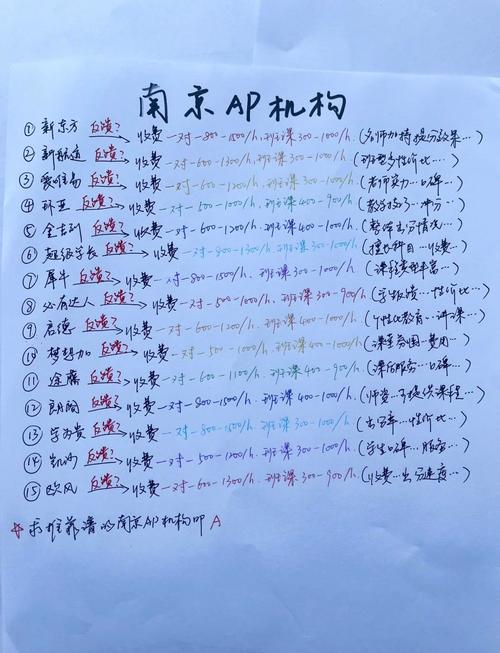 南京AP机构
① 新东方 反馈? 收费一对一800-1500/h.班课300-1000/h.(名师加持提分效果…)
② 新航道 反馈? 收费一对一600-1300/h.班课300-1000/h.(班型多性价比…)
③ 爱唯易 反馈? 收费一对一600-1200/h.班课300-1000/h.(老师实力…口碑…)
④ 环亚 反馈? 收费一对一500-1000/h.班课400-900/h.(冲分…)
⑤ 金吉列 反馈? 收费一对一600-1200/h.班课300-1000/h.(出分情况…)
⑥ 超级学长 反馈? 收费一对一800-1300/h.班课300-1000/h.(擅长科目…收费…)
⑦ 犀牛 反馈? 收费一对一800-1500/h.班课300-1000/h.(课程费用丰富…)
⑧ 必有达人 反馈? 收费一对一500-1000/h.班课300-900/h.(学生反馈…性价比…)
⑨ 启德 反馈? 收费一对一600-1200/h.班课400-1000/h.(个性化教育…讲课…)
⑩ 梦想加 反馈? 收费一对一500-1000/h.班课300-1000/h.(课堂氛围…费用…)
⑪ 途鹰 反馈? 收费一对一600-1100/h.班课400-900/h.(课后服务…口碑…)
⑫ 朗阁 反馈? 收费一对一800-1500/h.班课300-1000/h.(师资…可提供课程…)
⑬ 学为贵 反馈? 收费一对一800-1500/h.班课300-1000/h.(出分率…性价比…)
⑭ 凯鸿 反馈? 收费一对一500-1200/h.班课300-1000/h.(学生口碑…服务…)
⑮ 欧风 反馈? 收费一对一600-1300/h.班课300-900/h.(收费…出分速度…)
☆ 求推靠谱的南京AP机构叩 A